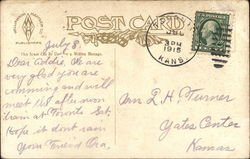 POST CARD
PUBLISHERS
This Space Can Be Used for Writing Message.
3 PM
1915
KANS.
July 8,
Dear Addie, We are
very glad you are
comming and will
meet the afternoon
train at Toronto Sat.
Hope it dont rain
Your Friend Ora.
Mrs L H Turner
Yates Center
Kansas